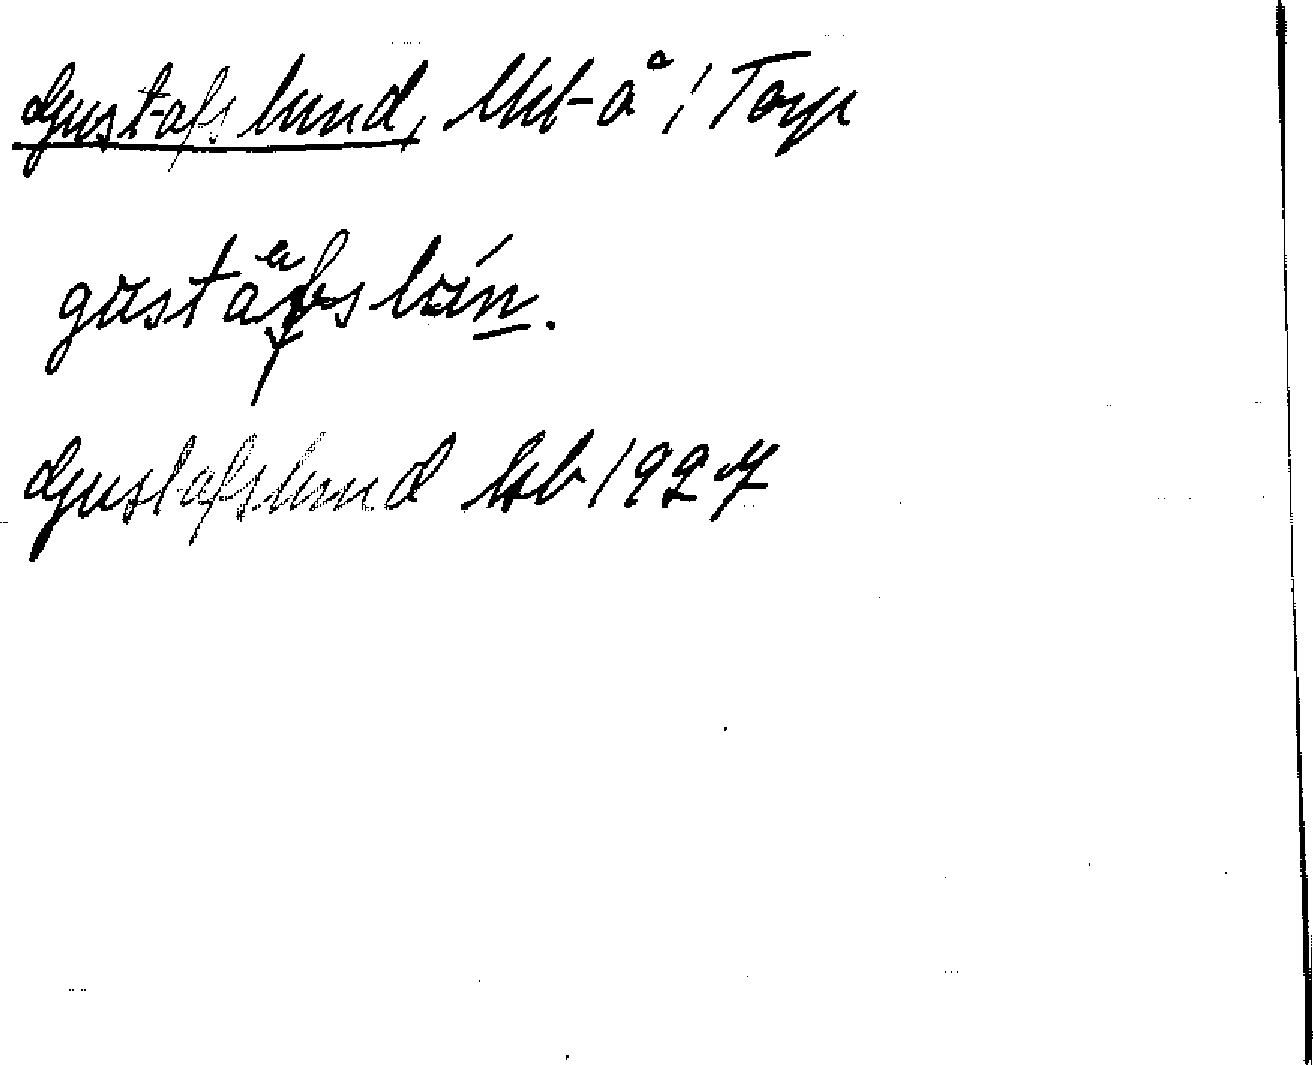 Gustafslund, Utl-å i Torp
gustafslun.
Gustafslund kb 1927